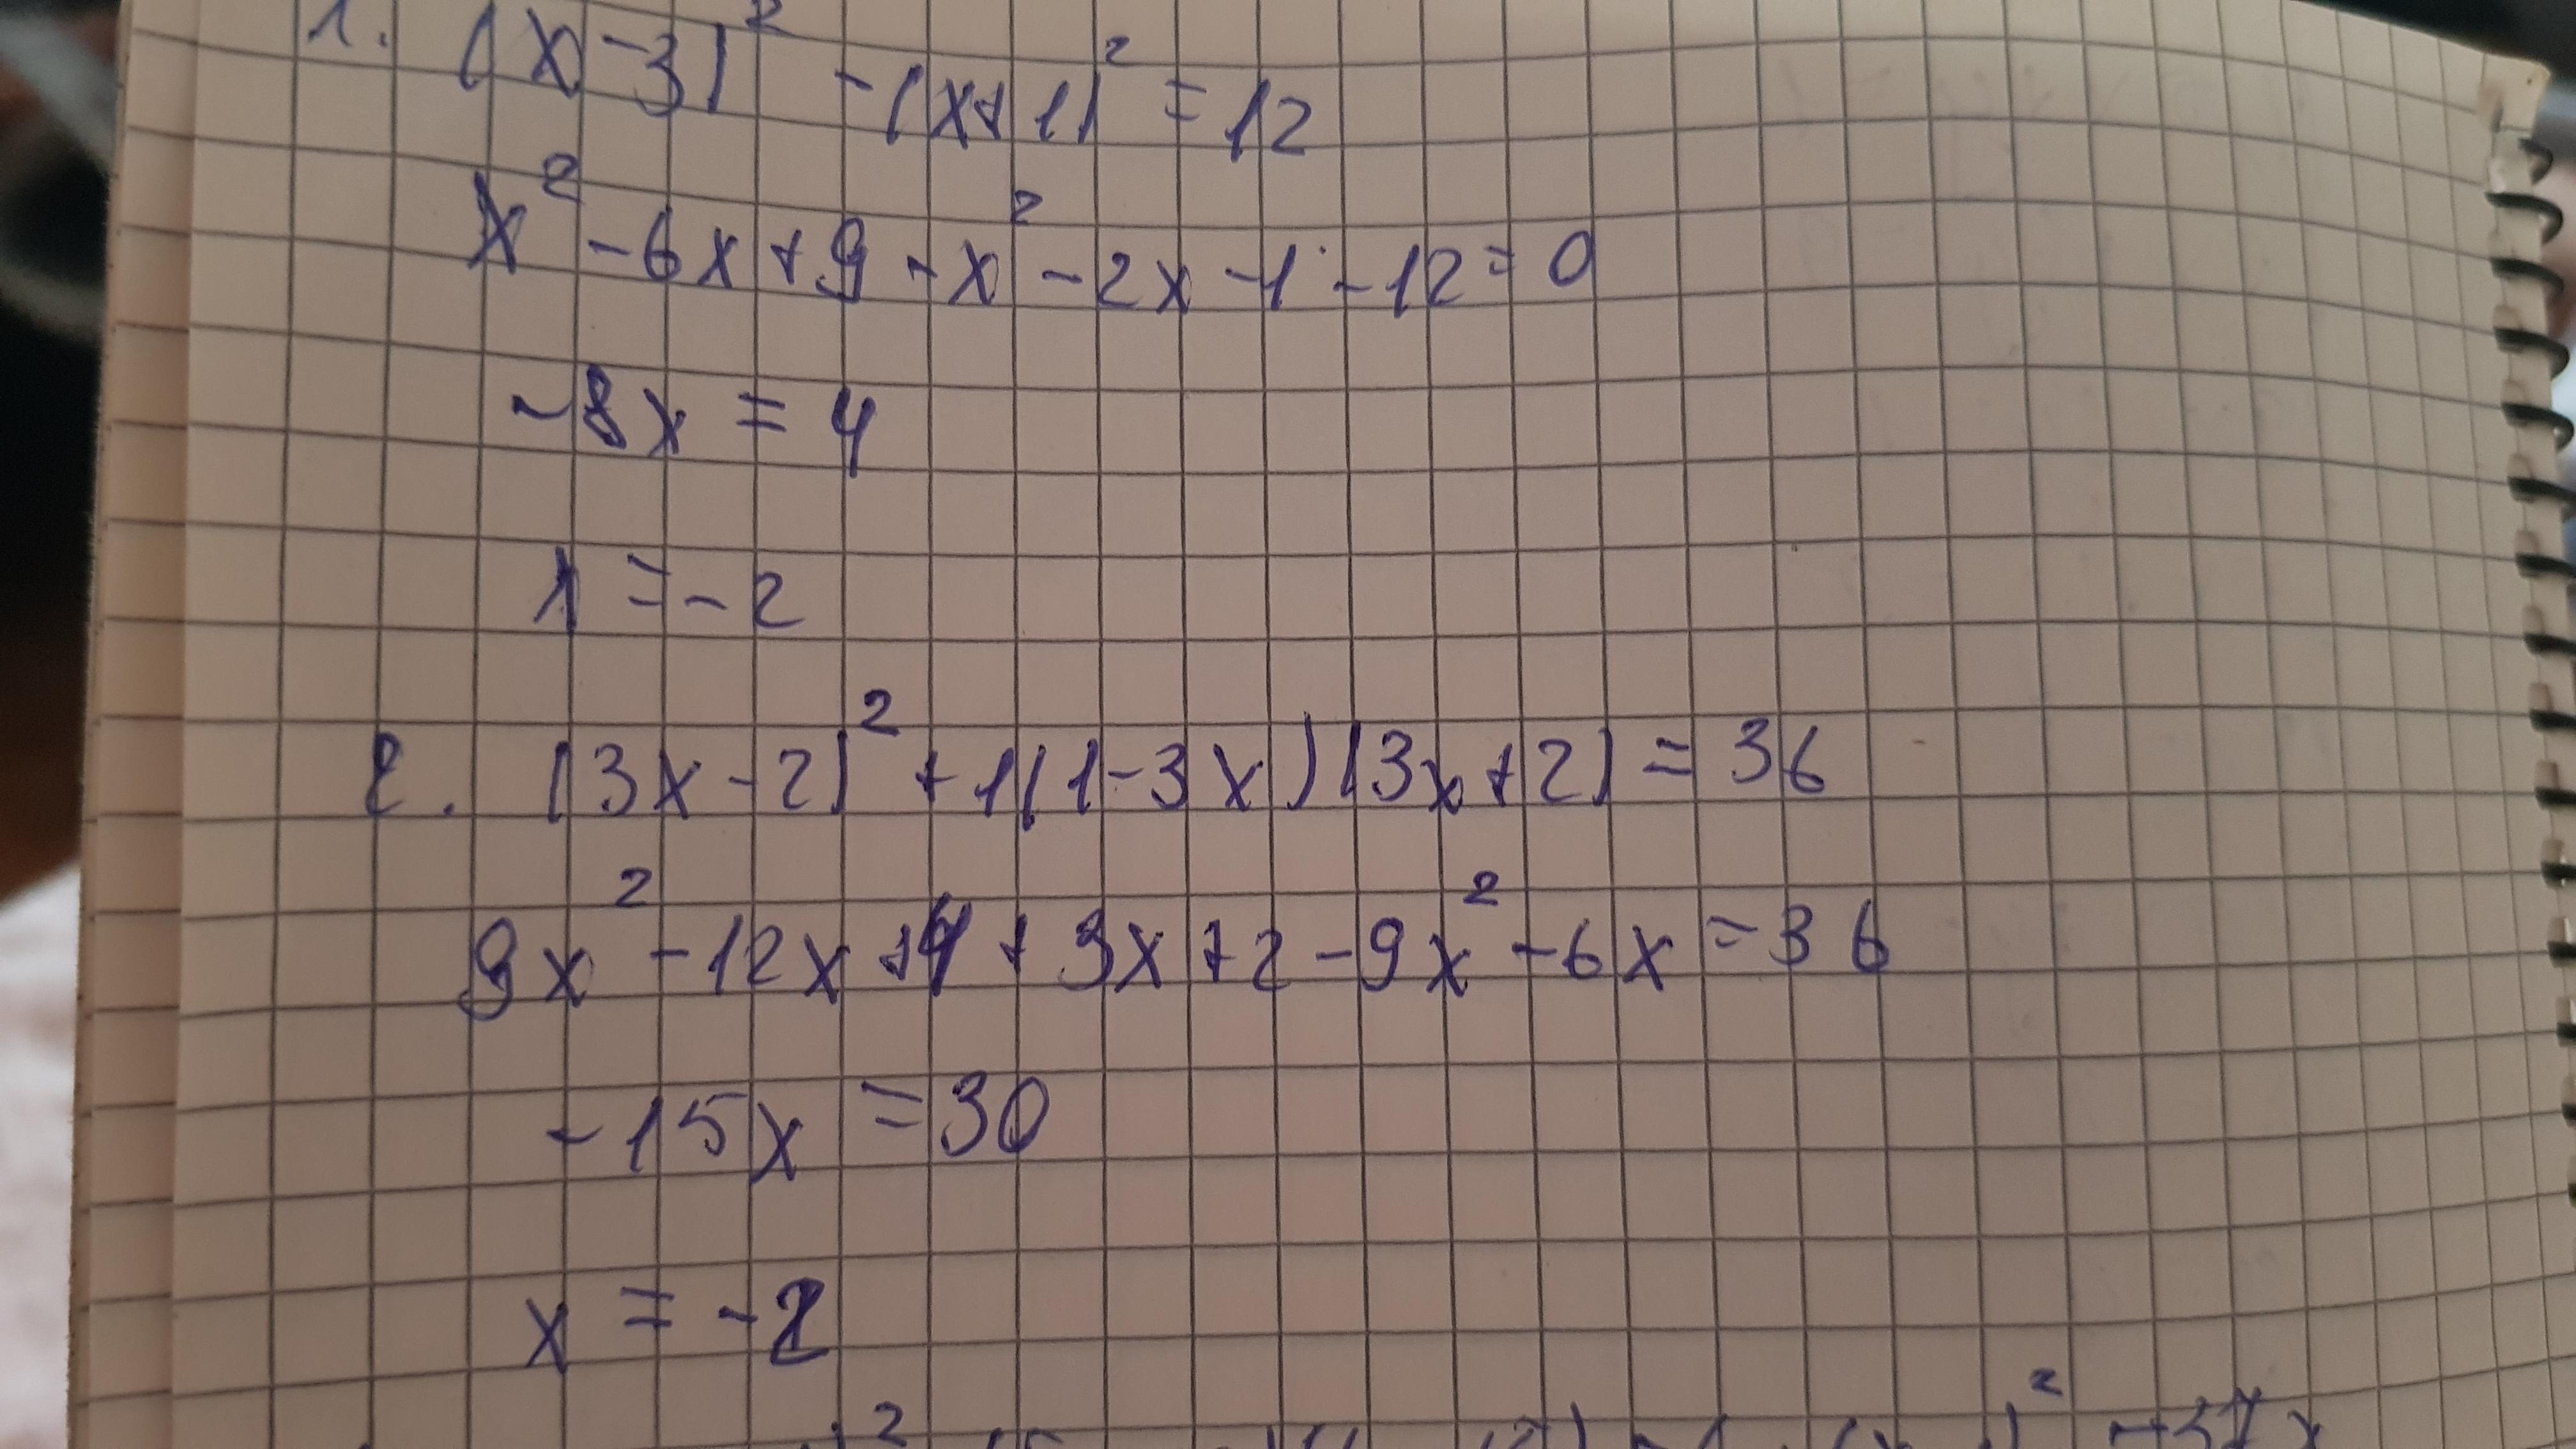 1. (x-3)² -(x+1)² = 12
x² -6x+9 -x² -2x -1 -12 = 0
-8x = 4
1 = -2
2. (3x-2)² +1(1-3x)(3x+2) = 36
9x² -12x +4 + 3x +2 -9x² -6x = 36
-15x = 30
x = -2